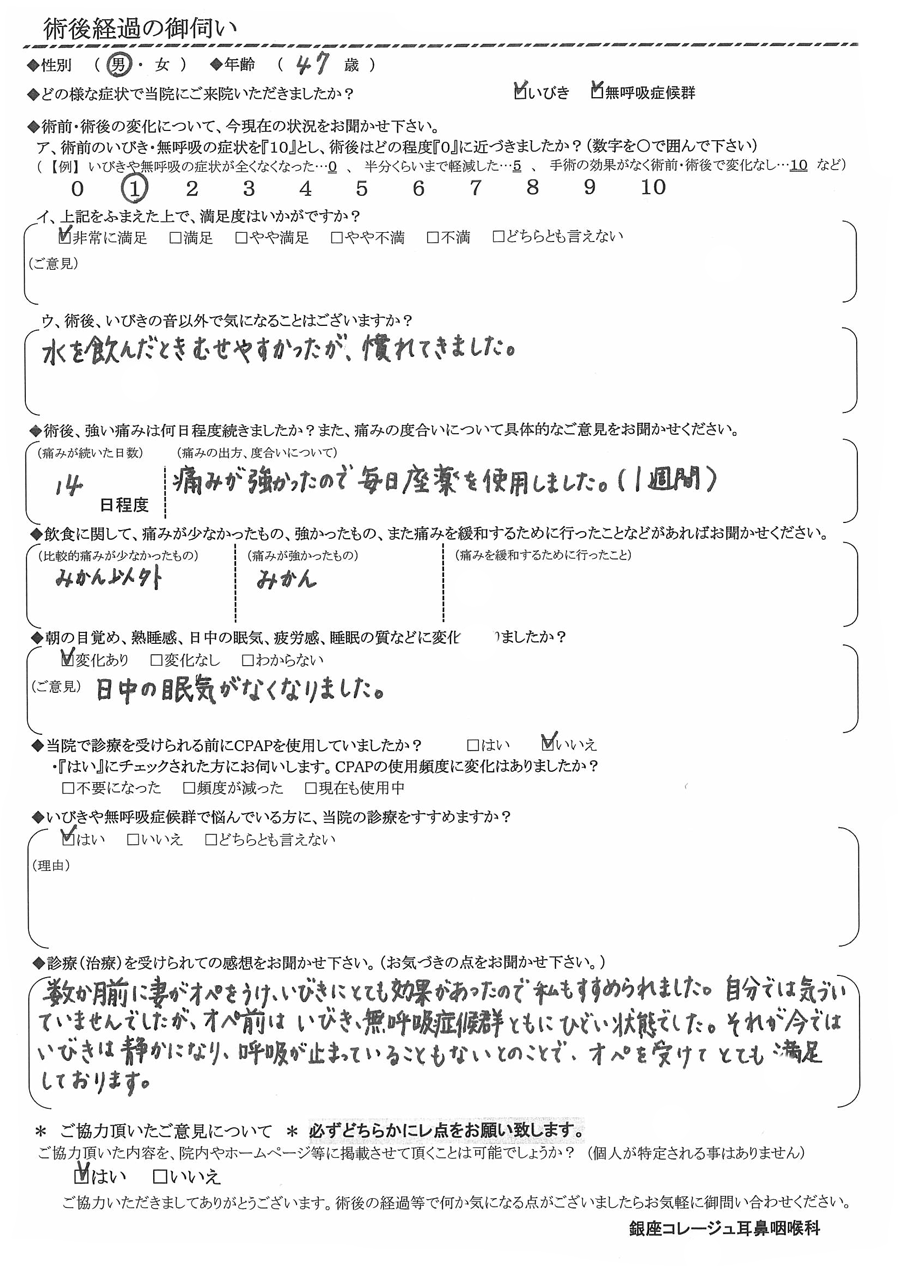 術後経過の御伺い
◆性別 ( 男 ・ 女 ) ◆年齢 ( 47 歳 )
◆どの様な症状で当院にご来院いただきましたか? ☑いびき ☑無呼吸症候群
◆術前・術後の変化について、今現在の状況をお聞かせ下さい。
ア、術前のいびき・無呼吸の症状を『10』とし、術後はどの程度『0』に近づきましたか?(数字を〇で囲んで下さい)
(【例】 いびきや無呼吸の症状が全くなくなった…0 、 半分くらいまで軽減した…5 、 手術の効果がなく術前・術後で変化なし…10 など)
0 1 2 3 4 5 6 7 8 9 10
イ、上記をふまえた上で、満足度はいかがですか?
☑非常に満足 □満足 □やや満足 □やや不満 □不満 □どちらとも言えない
(ご意見)
ウ、術後、いびきの音以外で気になることはございますか?
水を飲んだときむせやすかったが、慣れてきました。
◆術後、強い痛みは何日程度続きましたか?また、痛みの度合いについて具体的なご意見をお聞かせください。
(痛みが続いた日数) (痛みの出方、度合いについて)
14 日程度 痛みが強かったので毎日座薬を使用しました。(1週間)
◆飲食に関して、痛みが少なかったもの、強かったもの、また痛みを緩和するために行ったことなどがあればお聞かせください。
(比較的痛みが少なかったもの) (痛みが強かったもの) (痛みを緩和するために行ったこと)
みかん以外 みかん
◆朝の目覚め、熟睡感、日中の眠気、疲労感、睡眠の質などに変化 りましたか?
☑変化あり □変化なし □わからない
(ご意見) 日中の眠気がなくなりました。
◆当院で診療を受けられる前にCPAPを使用していましたか? □はい ☑いいえ
・『はい』にチェックされた方にお伺いします。CPAPの使用頻度に変化はありましたか?
□不要になった □頻度が減った □現在も使用中
◆いびきや無呼吸症候群で悩んでいる方に、当院の診療をすすめますか?
☑はい □いいえ □どちらとも言えない
(理由)
◆診療(治療)を受けられての感想をお聞かせ下さい。(お気づきの点をお聞かせ下さい。)
数か月前に妻がオペをうけ、いびきにとても効果があったので私もすすめられました。自分では気づい
ていませんでしたが、オペ前は いびき、無呼吸症候群ともにひどい状態でした。それが今では
いびきは静かになり、呼吸が止まっていることもないとのことで、オペを受けてとても満足
しております。
* ご協力頂いたご意見について * 必ずどちらかにレ点をお願い致します。
ご協力頂いた内容を、院内やホームページ等に掲載させて頂くことは可能でしょうか? (個人が特定される事はありません)
☑はい □いいえ
ご協力いただきましてありがとうございます。術後の経過等で何か気になる点がございましたらお気軽に御問い合わせください。
銀座コレージュ耳鼻咽喉科